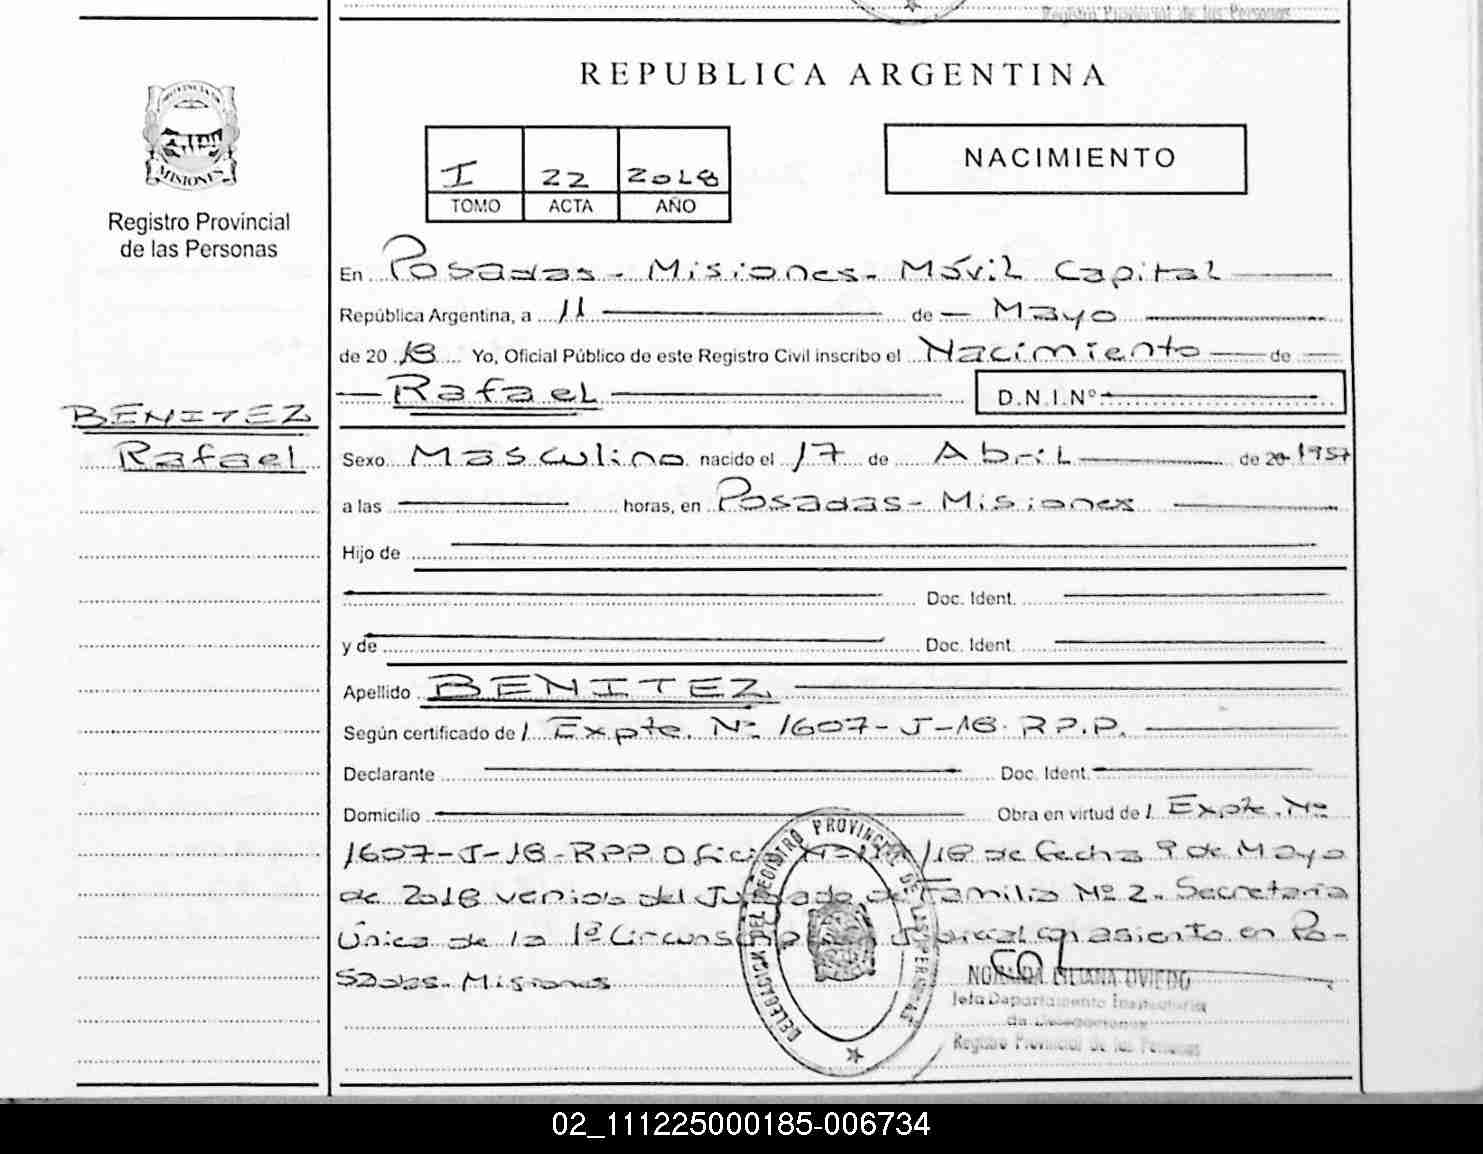 Registro Provincial de las Personas
REPUBLICA ARGENTINA
PROVINCIA DE
MISIONES
Registro Provincial
de las Personas
I 22 2018
TOMO ACTA AÑO
NACIMIENTO
En Posadas - Misiones - Móvil Capital
República Argentina, a 11 de Mayo
de 20 18 Yo, Oficial Público de este Registro Civil inscribo el Nacimiento de
Rafael D.N.I.Nº
BENITEZ
Rafael
Sexo Masculino nacido el 17 de Abril de 20 1957
a las horas, en Posadas - Misiones
Hijo de
Doc. Ident.
y de Doc. Ident.
Apellido BENITEZ
Según certificado de / Expte. Nº 1607-J-18. RPP.
Declarante Doc. Ident.
Domicilio Obra en virtud de / Expte. Nº
1607-J-18-RPP. Oficio /18 de fecha 9 de Mayo
de 2018 venido del Juzgado de Familia Nº 2. Secretaría
Única de la 1º Circunscripción Judicial con asiento en Po-
sadas - Misiones
DELEGACION DEL REGISTRO PROVINCIAL DE LAS PERSONAS
LILIANA OVIEDO
Jefa Departamento
de Delegaciones
Registro Provincial de las Personas
02_111225000185-006734